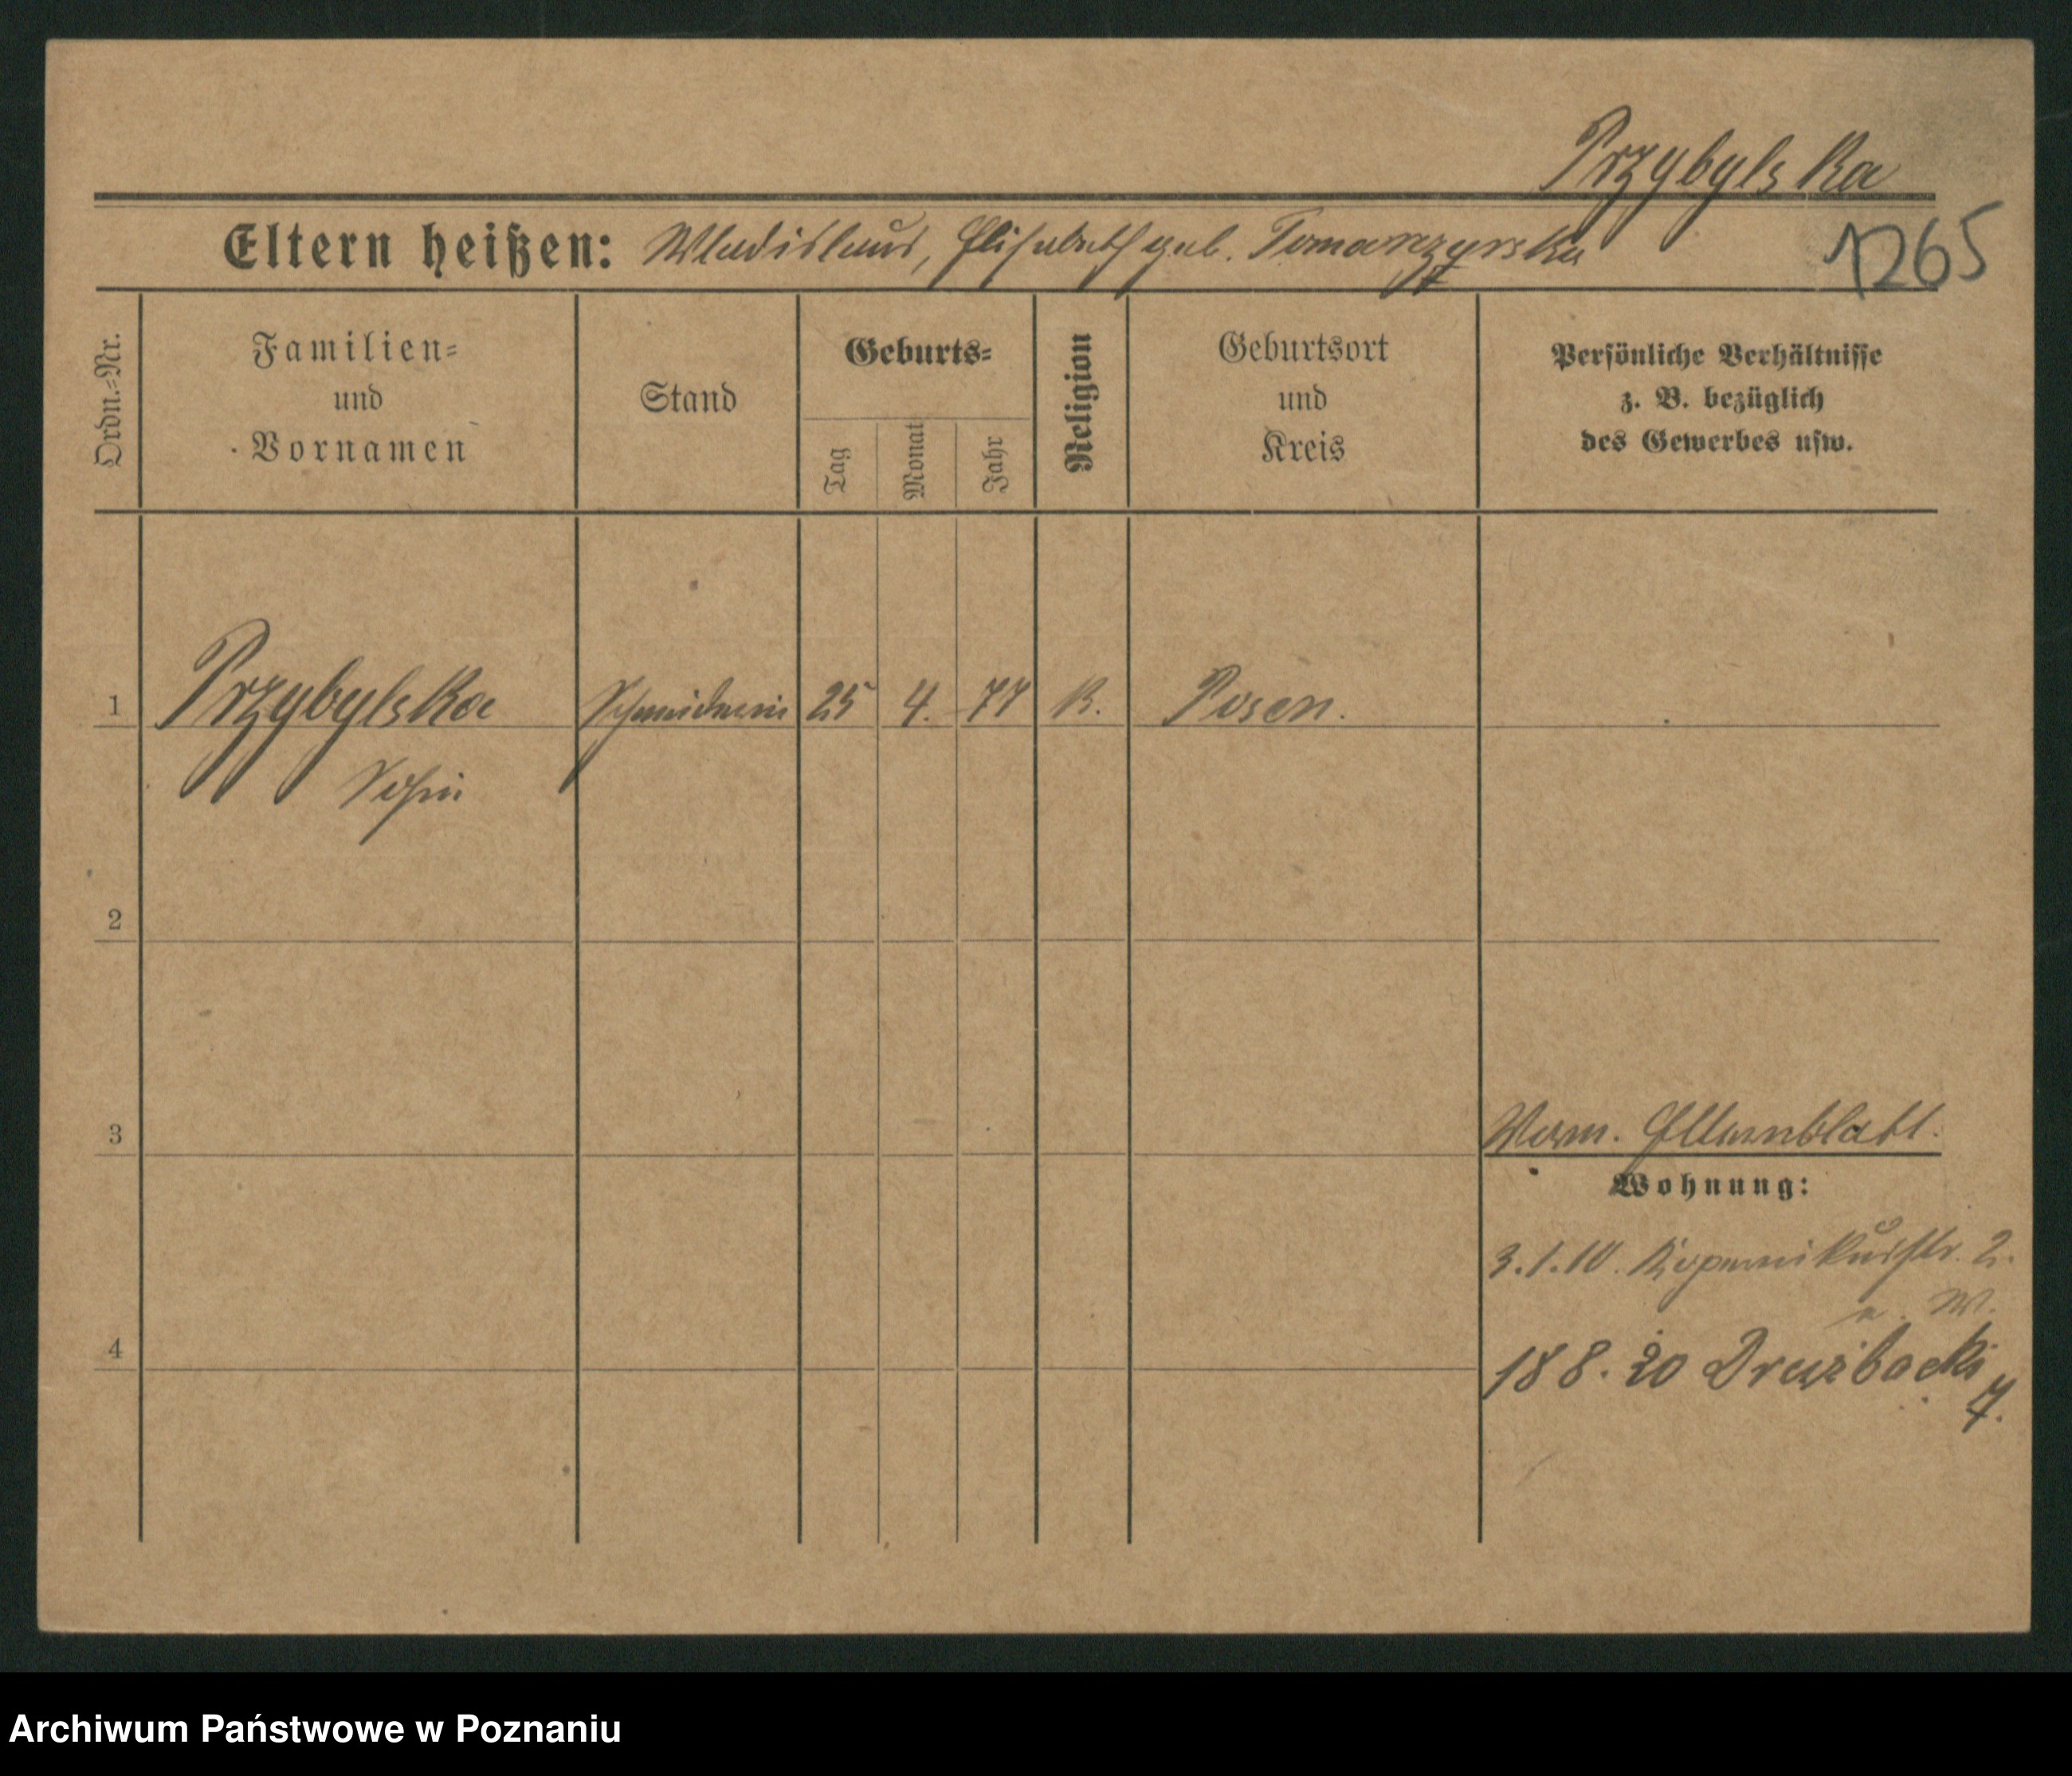 Przybylska
Eltern heißen: Wladislaus, Elisabeth geb. Tomarzyrska
1265
Ordn.-Nr.
Familien-
und
Vornamen
Stand
Geburts-
Tag
Monat
Jahr
Religion
Geburtsort
und
Kreis
Persönliche Verhältnisse
z. B. bezüglich
des Gewerbes usw.
1 Przybylska Schneiderin 25 4. 77 K. Posen.
Sofie
2
3
Vorm. Elternblatt.
Wohnung:
3.1.10. Kopernikusstr. 2.
W.
4
18 8. 20 Drużbacki
7.
Archiwum Państwowe w Poznaniu